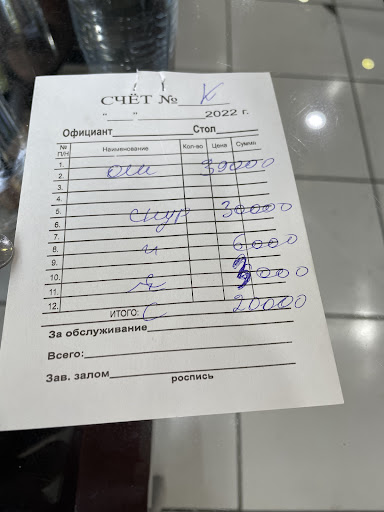 СЧЁТ № К
"____"____________2022 г.
Официант____________Стол_______
№ П/Н Наименование Кол-во Цена Сумма
1.
2. ош 39000
3.
4.
5. спур 30000
6.
7.
8. ч 6000
9.
10. 5000
11.
12.
ИТОГО: С 20000
За обслуживание
Всего:
Зав. залом
роспись